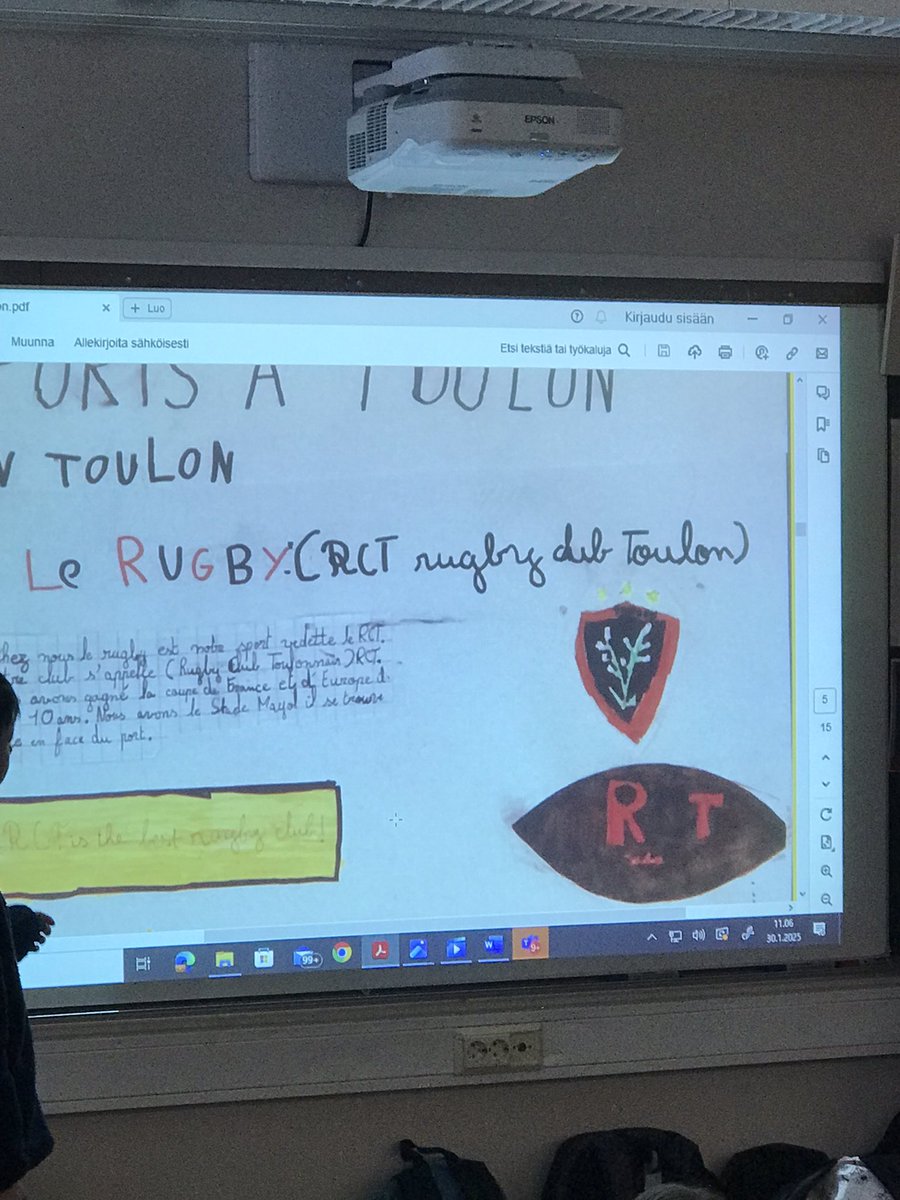 EPSON
on.pdf
+ Luo
Kirjaudu sisään
Muunna
Allekirjoita sähköisesti
Etsi tekstiä tai työkaluja
ORTS A TOULON
TOULON
Le RUGBY:(RCT rugby club Toulon)
chez nous le rugby est notre sport vedette le RCT.
tre club s'appelle (Rugby Club Toulonnais) RCT.
avons gagné la coupe de France et d'Europe
10 ans. Nous avons le Stade Mayol il se trouve
en face du port.
RCT is the best rugby club!
R T
5
15
99+
9+
11.06
30.1.2025